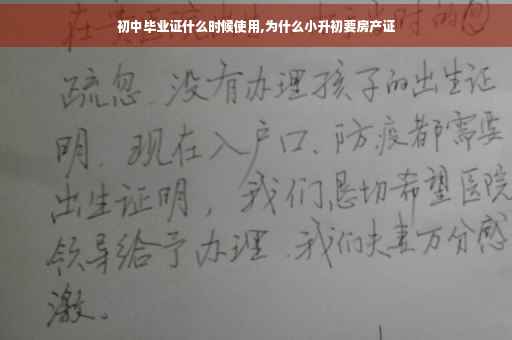 初中毕业证什么时候使用,为什么小升初要房产证
疏忽、没有办理孩子的出生证
明、现在入户口、防疫都需要
出生证明，我们恳切希望医院
领导给予办理、我们夫妻万分感
激。